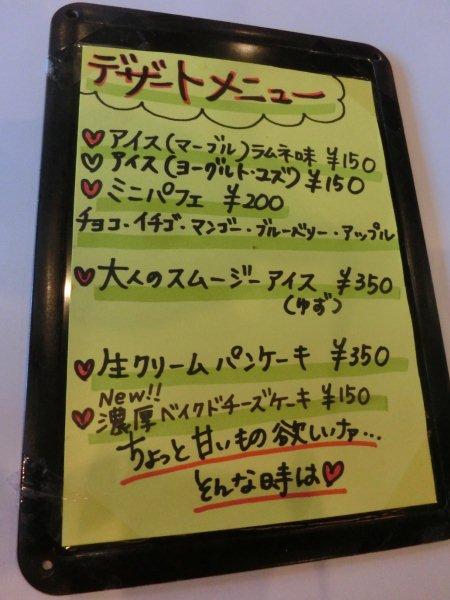 デザートメニュー
アイス(マーブル)ラムネ味 ¥150
アイス(ヨーグルト・ユズ) ¥150
ミニパフェ ¥200
チョコ・イチゴ・マンゴー・ブルーベリー・アップル
大人のスムージーアイス ¥350
(ゆず)
生クリームパンケーキ ¥350
New!!
濃厚ベイクドチーズケーキ ¥150
ちょっと甘いもの欲しいナァ…
そんな時は